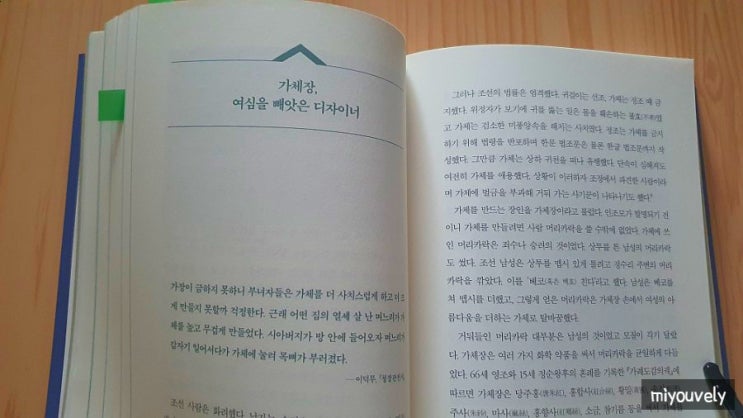 가체장,
여심을 빼앗은 디자이너
가장이 금하지 못하니 부녀자들은 가체를 더 사치스럽게 하고 더 크
게 만들지 못할까 걱정한다. 근래 어떤 집의 열세 살 난 며느리가 가
체를 높고 무겁게 만들었다. 시아버지가 방 안에 들어오자 며느리가
갑자기 일어서다가 가체에 눌려 목뼈가 부러졌다.
—이덕무,
조선 사람은 화려했다.
그러나 조선의 법률은 엄격했다. 귀걸이는 선조, 가체는 정조 때 금
지했다. 위정자가 보기에 귀를 뚫는 일은 몸을 훼손하는 불효(不孝)였
고 가체는 검소한 미풍양속을 해치는 사치였다. 정조는 가체를 금지하
기 위해 법령을 반포하며 한문 법조문은 물론 한글 법조문까지 작
성했다. 그만큼 가체는 상하 귀천을 떠나 유행했다. 단속이 심해져도
여전히 가체를 애용했다. 상황이 이러하자 조정에서 파견한 사람이라
며 가체에 벌금을 부과해 거둬 가는 사기꾼이 나타나기도 했다.
가체를 만드는 장인을 가체장이라고 불렀다. 인조모가 발명되기 전
이니 가체를 만들려면 사람 머리카락을 쓸 수밖에 없었다. 가체에 쓰
인 머리카락은 죄수나 승려의 것이었다. 상투를 튼 남성의 머리카락
도 썼다. 조선 남성은 상투를 맵시 있게 틀려고 정수리 주변의 머리
카락을 깎았다. 이를 '베코(혹은 백호) 친다'라고 했다. 남성은 베코를
쳐 맵시를 더했고, 그렇게 얻은 머리카락은 가체장 손에서 여성의 아
름다움을 더하는 가체로 탈바꿈했다.
거둬들인 머리카락 대부분은 남성의 것이었고 모질이 각기 달랐
다. 가체장은 여러 가지 화학 약품을 써서 머리카락을 균일하게 다듬
었다. 66세 영조와 15세 정순왕후의 혼례를 기록한 『가례도감의궤』에
따르면 가체장은 당주홍
miyouvely